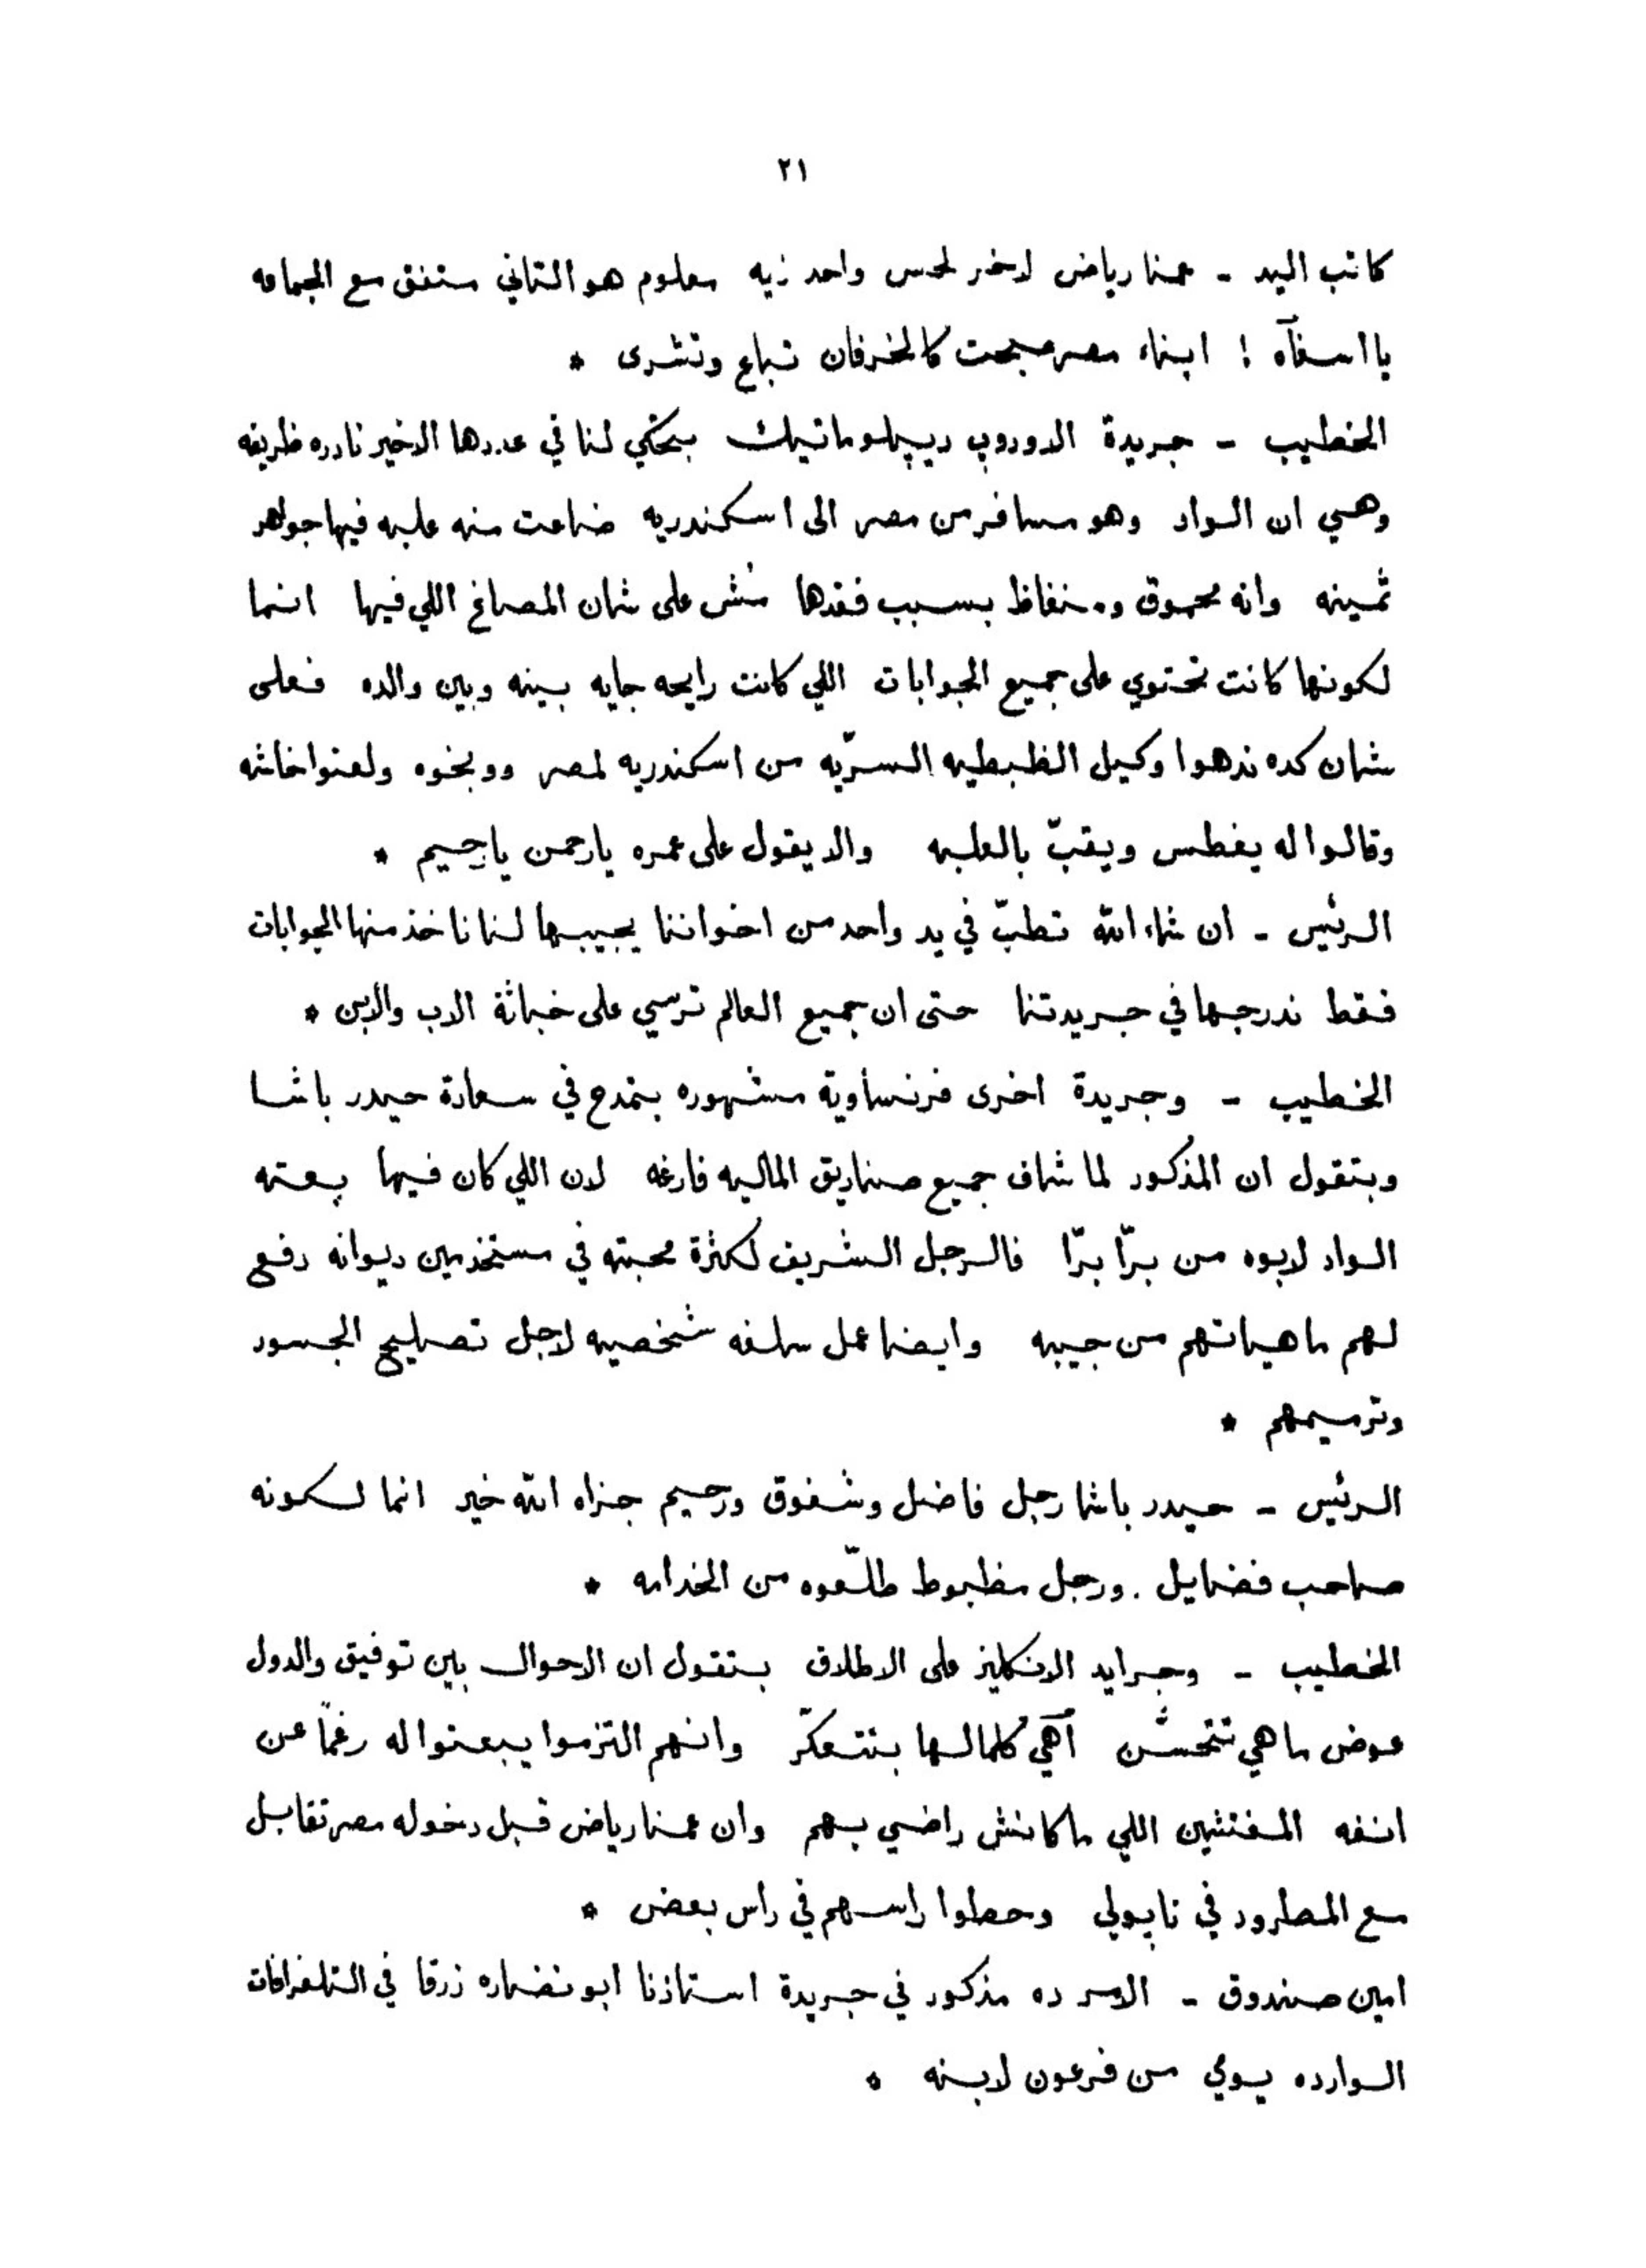 ٢١
كاتب اليد - عمنا رياض لاخر لحس واحد زيه معلوم هو التاني متفق مع الجماعه
يا اسفآه ! ابناء مصر صبحت كالخرفان تباع وتشرى *
الخطيب - جريدة الاوروپ ديپلوماتيك بتحكي لنا في عددها الاخير نادره ظريفه
وهي ان الواد وهو مسافر من مصر الى اسكندريه ضاعت منه علبه فيها جواهر
ثمينه وانه محموق ومنغاظ بسبب فقدها مُش على شان المصاغ اللي فيها انما
لكونها كانت تحتوي على جميع الجوابات اللي كانت رايحه جايه بينه وبين والده فعلى
شان كده ندهوا وكيل الظبطيه السرّيه من اسكندريه لمصر ووبخوه ولعنوا خاشه
وقالوا له يغطس ويقبّ بالعلبه والا يقول على عمره يا رحمن يا رحيم *
الرئيس - ان شاء الله تطبّ في يد واحد من اخواننا يجيبها لنا ناخذ منها الجوابات
فقط ندرجها في جريدتنا حتى ان جميع العالم ترسي على خباثة الاب والابن *
الخطيب - وجريدة اخرى فرنساوية مشهوره بتمدح في سعادة حيدر باشا
وبتقول ان المذكور لما شاف جميع صناديق الماليه فارغه لان اللي كان فيها بعته
الواد لابوه من برّا برّا فالرجل الشريف لكثرة محبته في مستخدمين ديوانه دفع
لهم ماهياتهم من جيبه وايضا عمل سلفه شخصيه لاجل تصليح الجسور
وترميمهم *
الرئيس - حيدر باشا رجل فاضل وشفوق ورحيم جزاه الله خير انما لكونه
صاحب فضايل . ورجل مظبوط طلّعوه من الخدامه *
الخطيب - وجرايد الانكليز على الاطلاق بتقول ان الاحوال بين توفيق والدول
عوض ما هي تتحسَّن آهي كلمالها بتتعكّر وانهم التزموا يبعتوا له رغماً عن
انفه المفتشين اللي ما كانش راضي بهم وان عمنا رياض قبل دخوله مصر تقابل
مع المطرود في ناپولي وحطوا راسهم في راس بعض *
امين صندوق - الامر ده مذكور في جريدة استاذنا ابو نضاره زرقا في التلغرافات
الوارده يومي من فرعون لابنه *